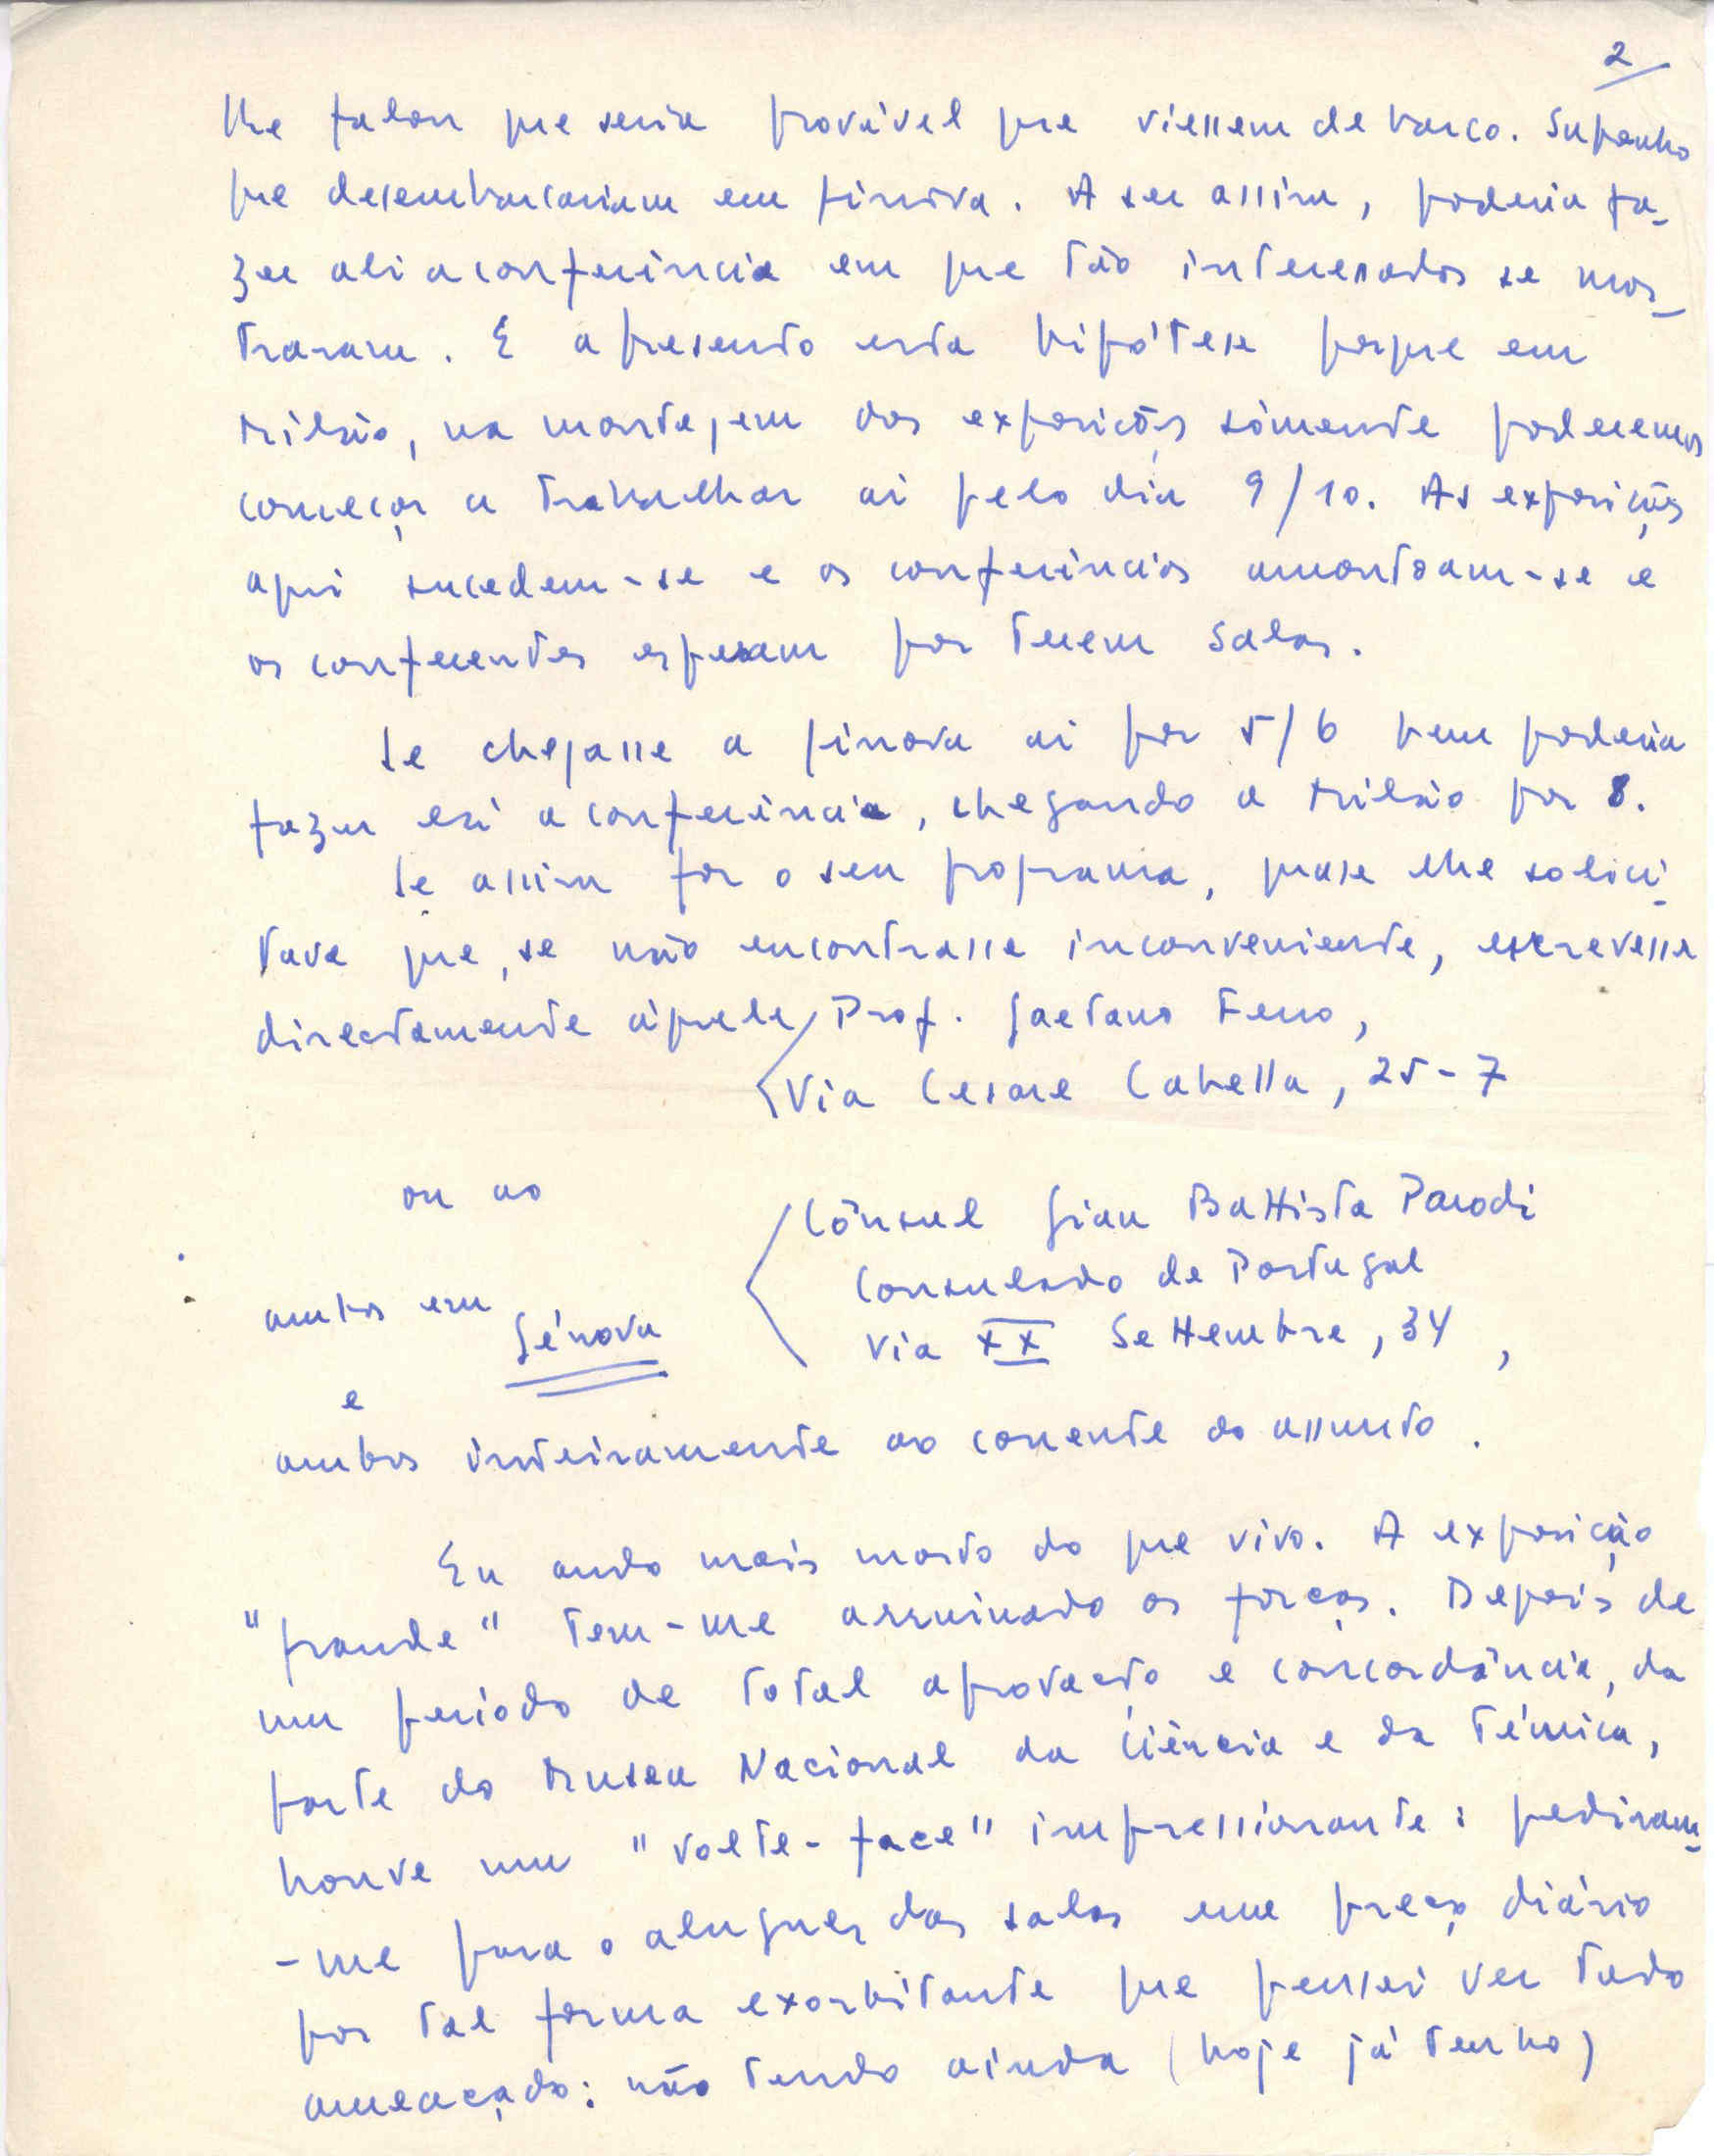 2
lhe falou que seria provável que viessem de barco. Suponho
que desembarcariam em Génova. A ser assim, poderia fa-
zer ali a conferência em que tão interessados se mos-
traram. E apresento esta hipótese porque em
Milão, na montagem das exposições sòmente poderemos
começar a trabalhar aí pelo dia 9/10. As exposições
aqui sucedem-se e as conferências amontoam-se e
os conferentes esperam por terem salas.
Se chegasse a Génova aí por 5/6 bem poderia
fazer ali a conferência, chegando a Milão por 8.
Se assim for o seu programa, quase lhe solici-
tava que, se não encontrasse inconveniente, escrevesse
directamente àquele Prof. Gaetano Ferro,
Via Cesare Cabella, 25-7
ou ao
Cônsul Gian Battista Parodi
Consulado de Portugal
ambos em Génova
Via XX Settembre, 34,
e
ambos inteiramente ao corrente do assunto.
Eu ando mais morto do que vivo. A exposição
"grande" tem-me arruinado as forças. Depois de
um período de total aprovação e concordância, da
parte do Museu Nacional da Ciência e da Técnica,
houve um "volte-face" impressionante: pediram-
-me para o aluguer das salas um preço diário
por tal forma exorbitante que pensei ver tudo
ameaçado: não tendo ainda (hoje já tenho)